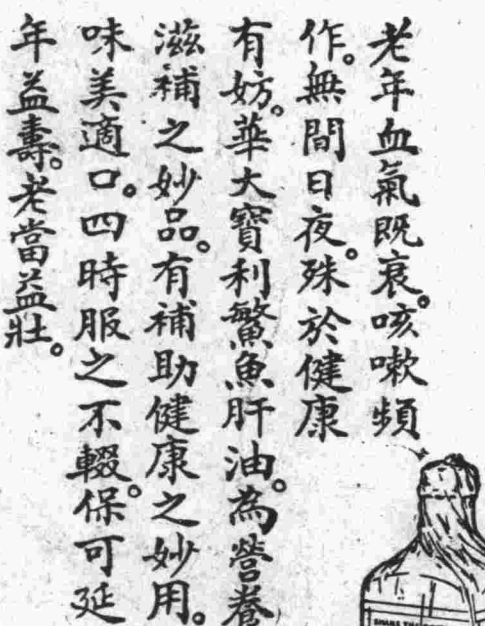 老年血氣既衰。咳嗽頻
作。無間日夜。殊於健康
有妨。華大寶利鱉魚肝油。為營養
滋補之妙品。有補助健康之妙用。
味美適口。四時服之不輟。保可延
年益壽。老當益壯。